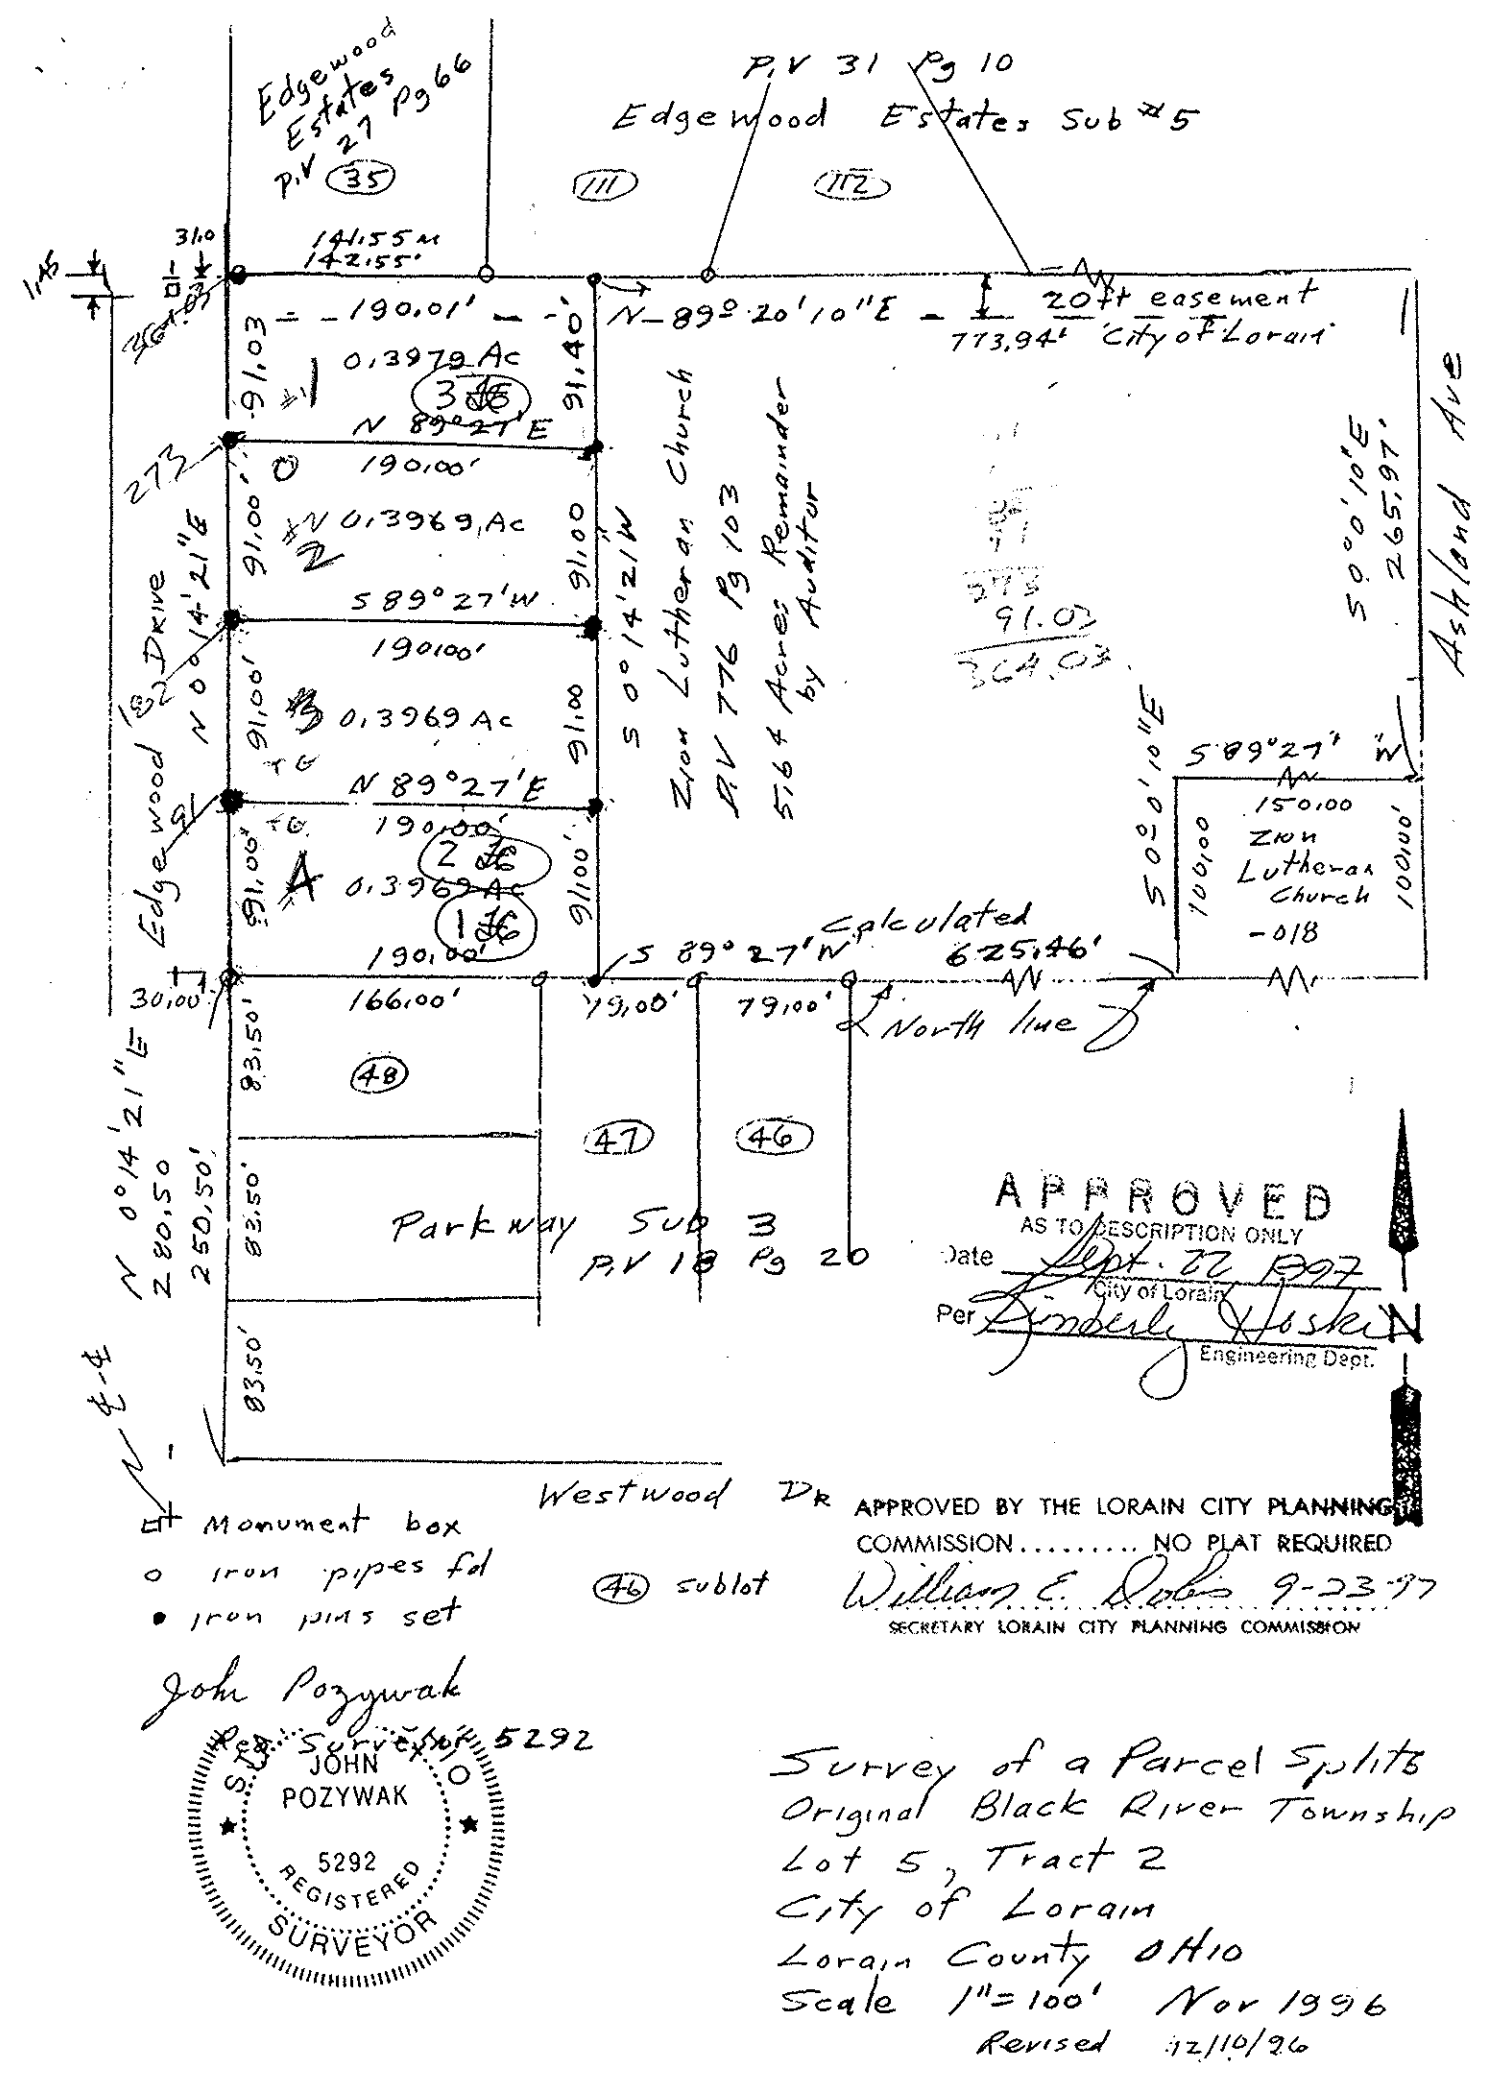 Edgewood
Estates
P.V 27 Pg 66
35
P.V 31 Pg 10
Edgewood Estates Sub #5
111
112
1.45
31.0
141.55 M
142.55'
364.03
190.01'
N-89° 20' 10" E
773.94'
20 ft easement
City of Lorain
91.03
#1
0.3979 Ac
91.40'
3 JG
N 89° 27' E
273
190.00'
0
91.00'
2
0.3969 Ac
91.00
S 89° 27' W
190.00'
182
91.00'
#3
0.3969 Ac
91.00
N 89° 27' E
91
190.00'
2 JG
91.00'
4
0.3969 Ac
91.00'
1 JG
190.00'
Edgewood Drive
N 0° 14' 21" E
S 0° 14' 21" W
Zion Lutheran Church
D.V 776 Pg 103
5.64 Acres Remainder
by Auditor
273
91.03
364.03
S 0° 0' 10" E
265.97'
Ashland Ave
S 0° 0' 10" E
S 89° 27' W
150.00
100.00
Zion
Lutheran
Church
-018
100.00'
Calculated
S 89° 27' W
625.46'
30.00'
166.00'
79.00'
79.00'
North line
83.50'
48
47
46
N 0° 14' 21" E
280.50
250.50'
83.50'
Parkway Sub 3
P.V 18 Pg 20
83.50'
APPROVED
AS TO DESCRIPTION ONLY
Date Sept. 22 1997
City of Lorain
Per Kimberly Hoskin
Engineering Dept.
N
℄-℄
Westwood Dr
Monument box
iron pipes fd
iron pins set
46 sublot
APPROVED BY THE LORAIN CITY PLANNING
COMMISSION.......... NO PLAT REQUIRED
William E. Dobis 9-23-97
SECRETARY LORAIN CITY PLANNING COMMISSION
John Pozywak
Reg Surveyor 5292
JOHN
POZYWAK
5292
REGISTERED
SURVEYOR
Survey of a Parcel Splits
Original Black River Township
Lot 5, Tract 2
City of Lorain
Lorain County OHIO
Scale 1"=100' Nov 1996
Revised 12/10/96